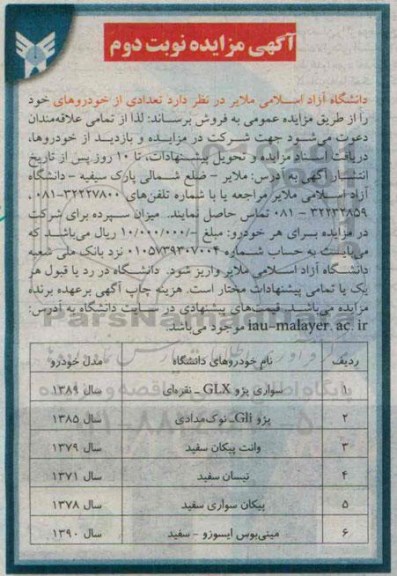 آگهی مزایده نوبت دوم
دانشگاه آزاد اسلامی ملایر در نظر دارد تعدادی از خودروهای خود
را از طریق مزایده عمومی به فروش برساند: لذا از تمامی علاقه‌مندان
دعوت می‌شود جهت شرکت در مزایده و بازدید از خودروها،
دریافت اسناد مزایده و تحویل پیشنهادات، تا ۱۰ روز پس از تاریخ
انتشار آگهی به آدرس: ملایر - ضلع شمالی پارک سیفیه - دانشگاه
آزاد اسلامی ملایر مراجعه یا با شماره تلفن‌های ۳۲۲۲۷۸۰۰-۰۸۱ ،
۳۲۲۳۲۸۵۹ - ۰۸۱ تماس حاصل نمایند. میزان سپرده برای شرکت
در مزایده برای هر خودرو: مبلغ -/۱۰/۰۰۰/۰۰۰ ریال می‌باشد که
می‌بایست به حساب شماره ۰۱۰۵۷۳۹۳۰۷۰۰۴ نزد بانک ملی شعبه
دانشگاه آزاد اسلامی ملایر واریز شود. دانشگاه در رد یا قبول هر
یک یا تمامی پیشنهادات مختار است. هزینه چاپ آگهی برعهده برنده
مزایده می‌باشد. قیمت‌های پیشنهادی در سایت دانشگاه به آدرس:
iau-malayer.ac.ir موجود می‌باشد.
ردیف نام خودروهای دانشگاه مدل خودرو
۱ سواری پژو GLX ـ نقره‌ای سال ۱۳۸۹
۲ پژو Gli ـ نوک‌مدادی سال ۱۳۸۵
۳ وانت پیکان سفید سال ۱۳۷۹
۴ نیسان سفید سال ۱۳۷۱
۵ پیکان سواری سفید سال ۱۳۷۸
۶ مینی‌بوس ایسوزو - سفید سال ۱۳۹۰